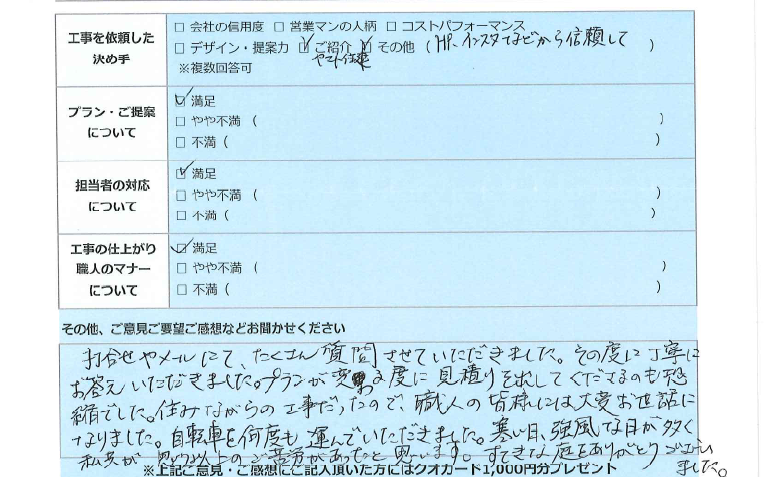 工事を依頼した
決め手
□ 会社の信用度 □ 営業マンの人柄 □ コストパフォーマンス
□ デザイン・提案力 ☑ ご紹介 ☑ その他 ( HP、インスタなどから信頼して )
ヤマト住建
※複数回答可
プラン・ご提案
について
☑ 満足
□ やや不満 ( )
□ 不満 ( )
担当者の対応
について
☑ 満足
□ やや不満 ( )
□ 不満 ( )
工事の仕上がり
職人のマナー
について
☑ 満足
□ やや不満 ( )
□ 不満 ( )
その他、ご意見ご要望ご感想などお聞かせください
打合せやメールにて、たくさん質問させていただきました。その度に丁寧に
お答えいただきました。プランが変わる度に見積りを出してくださるのも恐
縮でした。住みながらの工事だったので、職人の皆様には大変お世話に
なりました。自転車を何度も運んでいただきました。寒い日、強風な日が多く
私共が思う以上のご苦労があったと思います。すてきな庭をありがとうござい
ました。
※上記ご意見・ご感想にご記入頂いた方にはクオカード1,000円分プレゼント